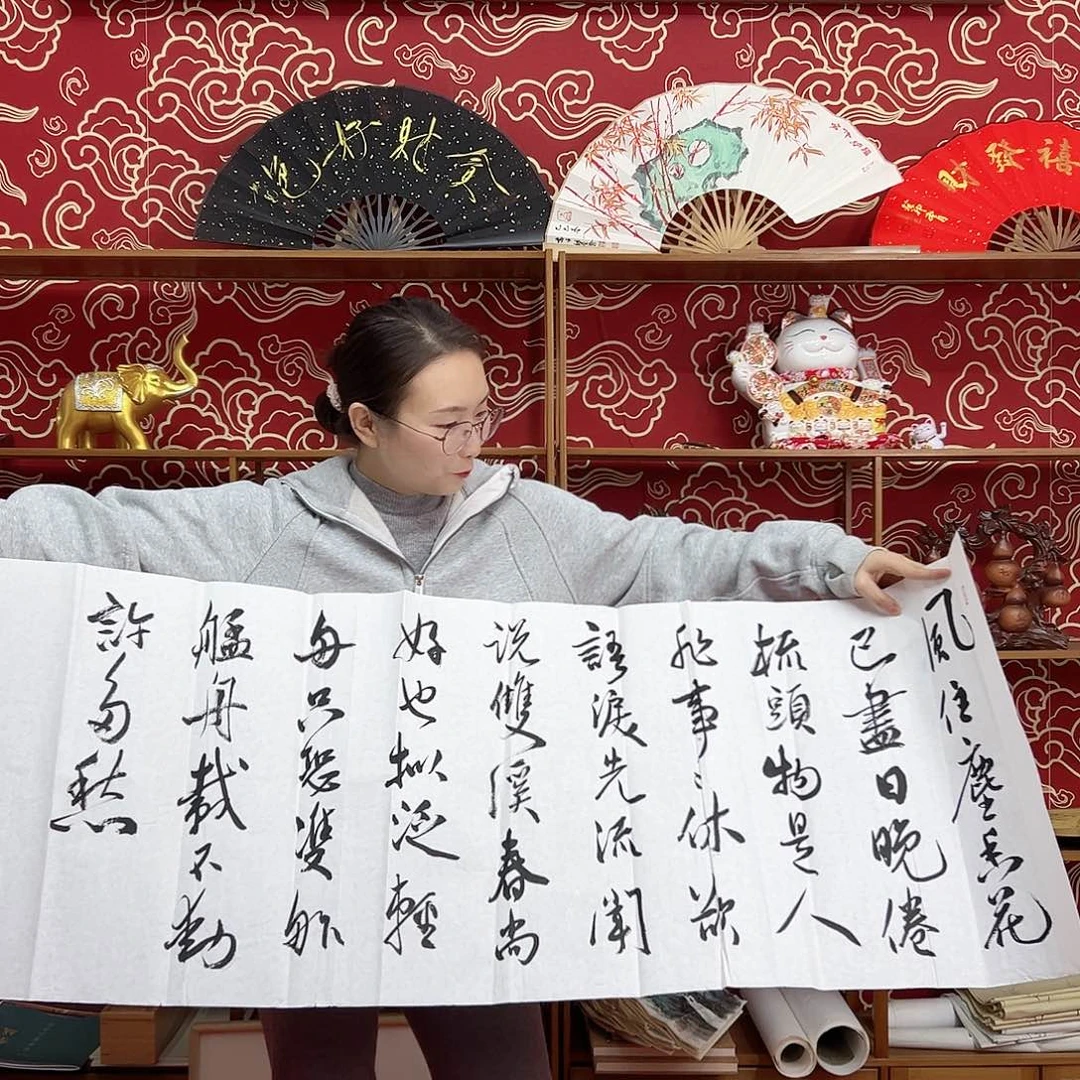 禧發財
風住塵香花
已盡日晚倦
梳頭物是人
非事〻休欲
語淚先流聞
说雙溪春尚
好也拟泛輕
舟只恐雙舴
艋舟載不動
許多愁